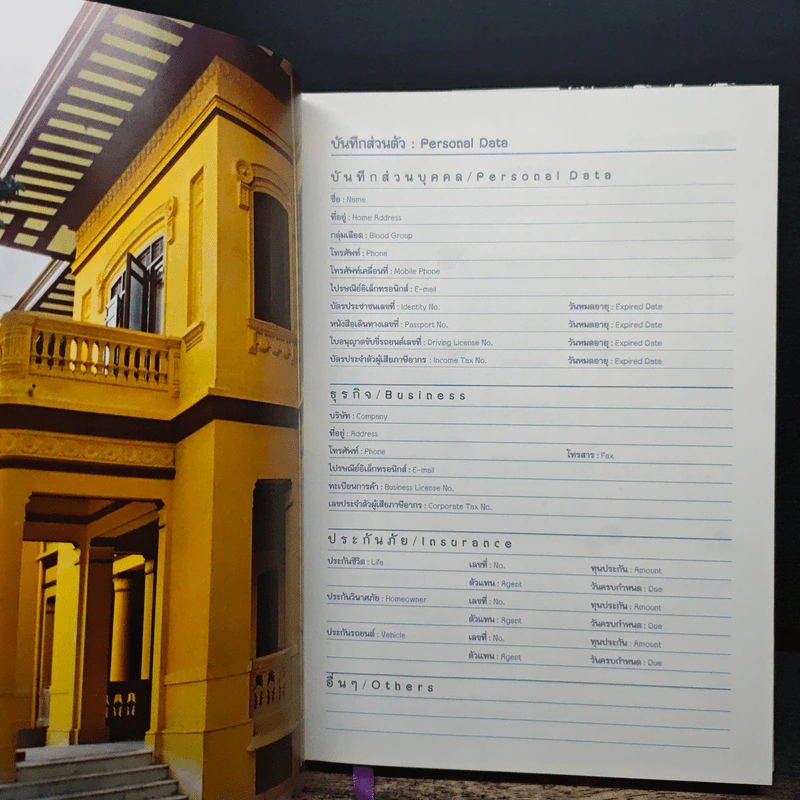 บันทึกส่วนตัว : Personal Data
บันทึกส่วนบุคคล/Personal Data
ชื่อ : Name
ที่อยู่ : Home Address
กลุ่มเลือด : Blood Group
โทรศัพท์ : Phone
โทรศัพท์เคลื่อนที่ : Mobile Phone
ไปรษณีย์อิเล็กทรอนิกส์ : E-mail
บัตรประชาชนเลขที่ : Identity No. วันหมดอายุ : Expired Date
หนังสือเดินทางเลขที่ : Passport No. วันหมดอายุ : Expired Date
ใบอนุญาตขับขี่รถยนต์เลขที่ : Driving License No. วันหมดอายุ : Expired Date
บัตรประจำตัวผู้เสียภาษีอากร : Income Tax No. วันหมดอายุ : Expired Date
ธุรกิจ/Business
บริษัท : Company
ที่อยู่ : Address
โทรศัพท์ : Phone โทรสาร : Fax
ไปรษณีย์อิเล็กทรอนิกส์ : E-mail
ทะเบียนการค้า : Business License No.
เลขประจำตัวผู้เสียภาษีอากร : Corporate Tax No.
ประกันภัย/Insurance
ประกันชีวิต : Life เลขที่ : No. ทุนประกัน : Amount
ตัวแทน : Agent วันครบกำหนด : Due
ประกันวินาศภัย : Homeowner เลขที่ : No. ทุนประกัน : Amount
ตัวแทน : Agent วันครบกำหนด : Due
ประกันรถยนต์ : Vehicle เลขที่ : No. ทุนประกัน : Amount
ตัวแทน : Agent วันครบกำหนด : Due
อื่นๆ/Others